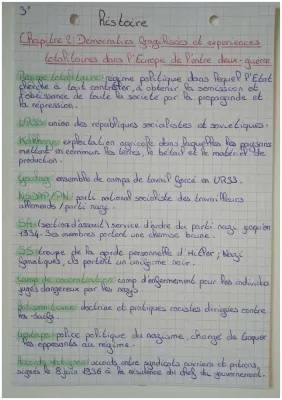 3e
Histoire
Chapitre 2: Démocraties fragilisées et expériences
totalitaires dans l'Europe de l'entre deux-guerre
Régime totalitaire: régime politique dans lequel l'Etat
cherche à tout contrôler, à obtenir la soumission et
l'obéissance de toute la société par la propagande et
la répression.
URSS: union des républiques socialistes et soviétiques.
Kolkhoze: exploitation agricole dans laquelles les paysans
mettent en commun les terres, le bétail et le matériel de
production.
Goulag: ensemble de camps de travail forcé en URSS.
NSDAP/PN: parti national socialiste des travailleurs
allemands / parti nazi.
SA: (sections d'assaut) service d'ordre du parti nazi jusqu'en
1934. Ses membres portent une chemise brune.
SS: troupe de la garde personnelle d'Hitler; Nazis
fanatiques, ils portent un uniforme noir.
Camp de concentration: camp d'enfermement pour les individus
jugés dangereux par les nazis.
Antisémitisme: doctrine et pratiques racistes dirigées contre
les juifs.
Gestapo: police politique du nazisme, chargé de traquer
les opposants au régime.
Accords Matignon: accords entre syndicats ouvriers et patrons,
signés le 8 juin 1936 à la résidence du chef du gouvernement.